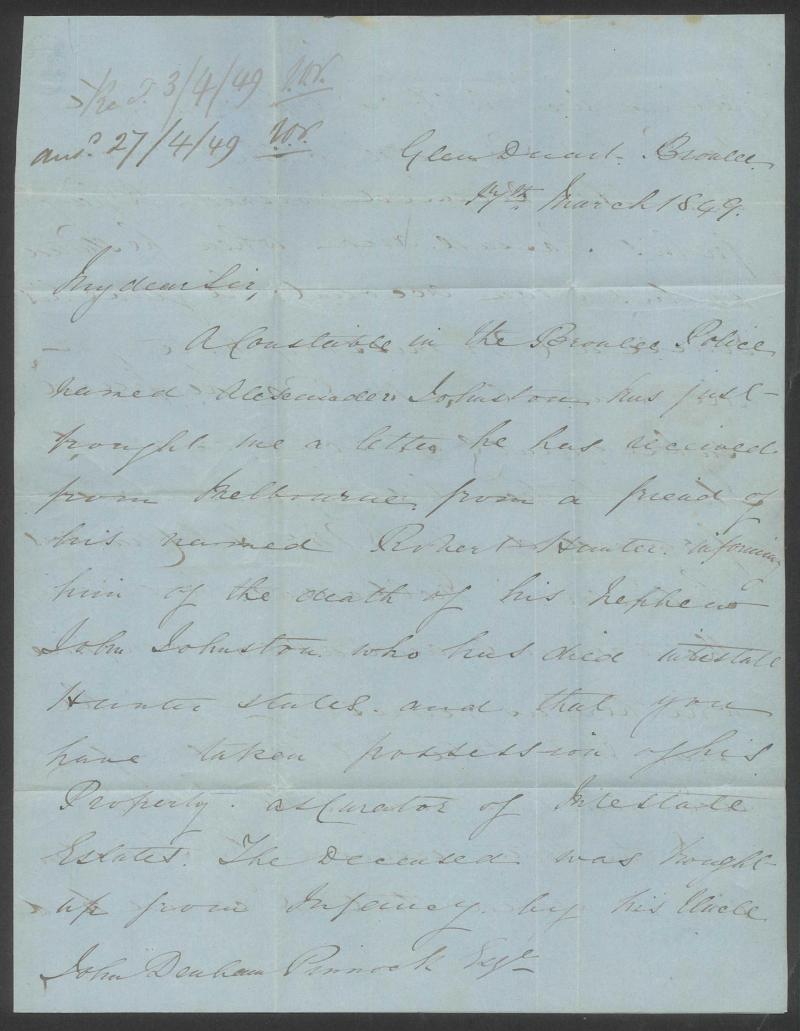 Recd. 3/4/49
ansd. 27/4/49
Glen Duart. Broulee
17th March 1849.
My dear Sir,
A Constable in the Broulee Police
named Alexander Johnston has just
brought me a letter he has received
from Melbourne from a friend of
his named Robert Hunter informing
him of the death of his Nephew
John Johnston who has died intestate
Hunter states. and that you
have taken possession of his
Property. as Curator of Intestate
Estates. The Deceased was brought
up from Infancy by his Uncle
John Denham Pinnock Esqr